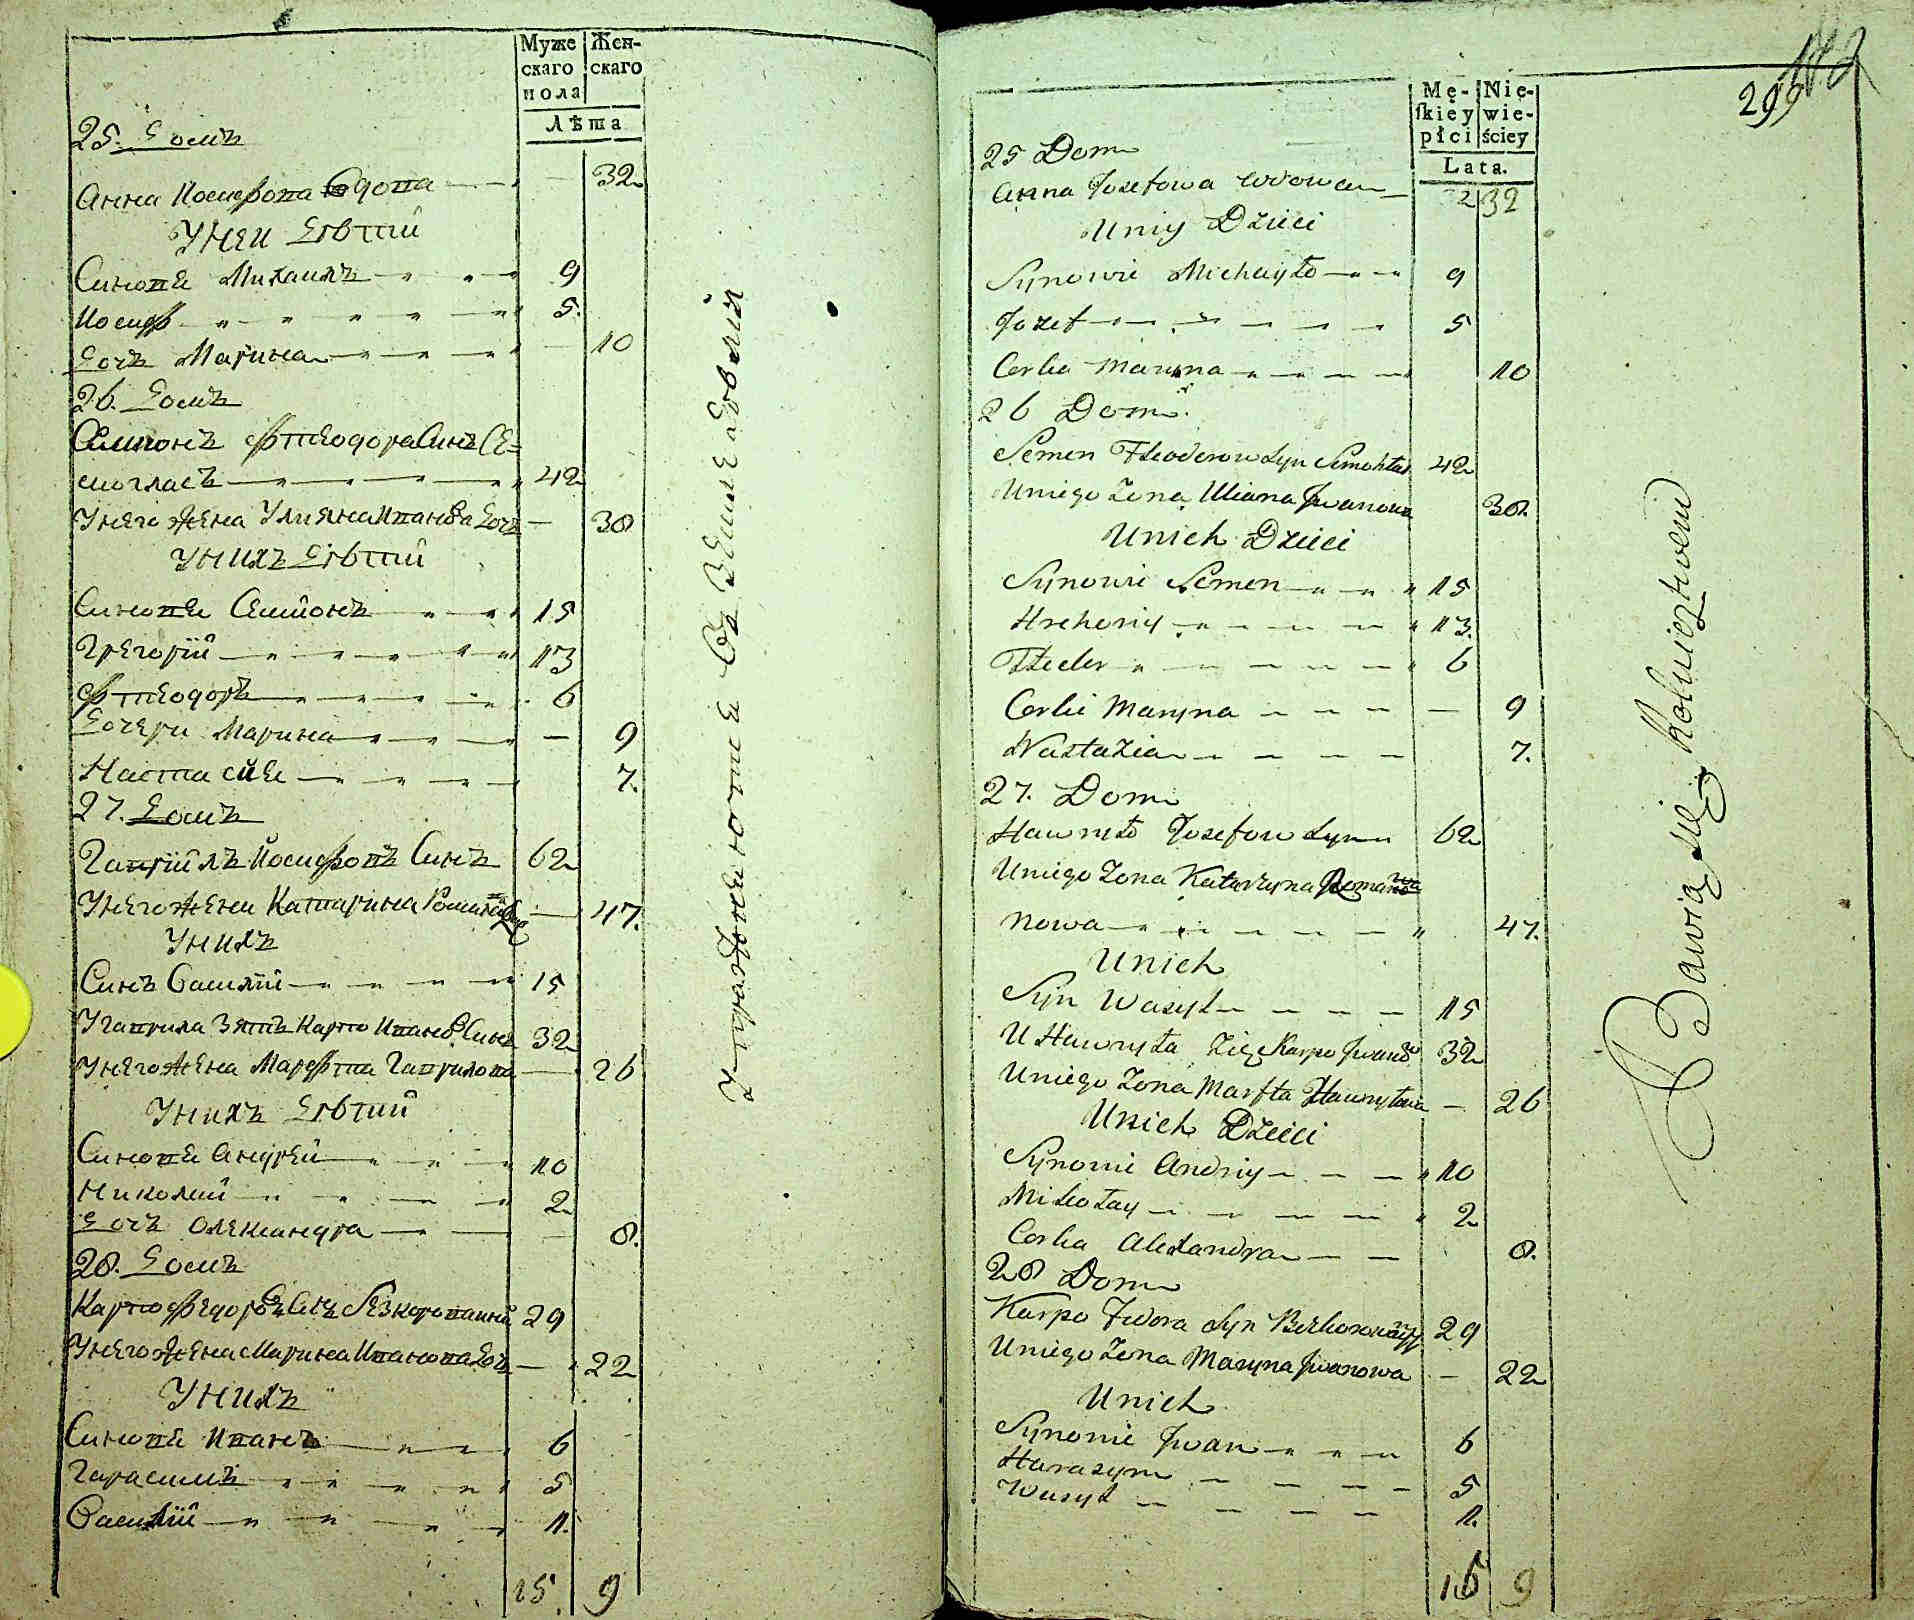 Муже Жен-
скаго скаго
пола
Лѣта
25. Домъ
Анна Иосифова Вдова — 32
У ней Дѣтий
Синове Михаилъ 9
Иосиф 5.
Дочъ Марина — 10
26. Домъ
Симионъ Фтеодора Синъ Се=
могласъ 42
У него жена Улияна Иванова Дочъ — 38
У нихъ Дѣтий
Синове Семионъ 15
Грегорий 13
Фтеодоръ 6
Дочери Марина — 9
Настасие 7.
27. Домъ
Гаврiилъ Иосифовъ Синъ 62
У него жена Катарина Романова — 47.
У нихъ
Синъ Василий 15
У Гаврила Зять Карпо Иванов Синъ 32
У него жена Марфта Гаврилова — 26
У нихъ Дѣтий
Синове Андрей 10
Николай 2
Дочъ Олександра — 8.
28. Домъ
Карпо Федоровъ Синъ Безкоровайний 29
У него жена Марина Иванова Дочъ — 22
У нихъ
Синове Иванъ 6
Гарасимъ 5
Василий 1.
15. 9
Упражняются въ Земледелии
299
Mę- Nie-
ſkiéy wie-
płci ściey
Lata.
25 Dom
Anna Jozefowa Wdowa — 32
Uniy Dzieci
Synowie Michayło 9
Jozef 5
Corka Maryna 10
26 Dom
Semen Fteoderow Syn Semohłas 42
Uniego Zona Uliana Jwanowa 38.
Unich Dzieci
Synowie Semen 15
Hrehoriy 13.
Fteder 6
Corki Maryna — 9
Nastazia 7.
27. Dom
Hawryło Jozefow Syn 62
Uniego Zona Katarzyna Roma
nowa 47.
Unich
Syn Wasyl 15
U Hawryła Zięc Karpo Jwanow 32
Uniego Zona Marfta Hawryłowa — 26
Unich Dzieci
Synowie Andriy 10
Mikołay 2
Corka Alexandra 8.
28 Dom
Karpo Fedora Syn Bezkorowayny 29
Uniego Zona Maryna Jwanowa — 22
Unich
Synowie Jwan 6
Harasym 5
Wasyl 1.
15 9
Bawią się Rolnicztwem